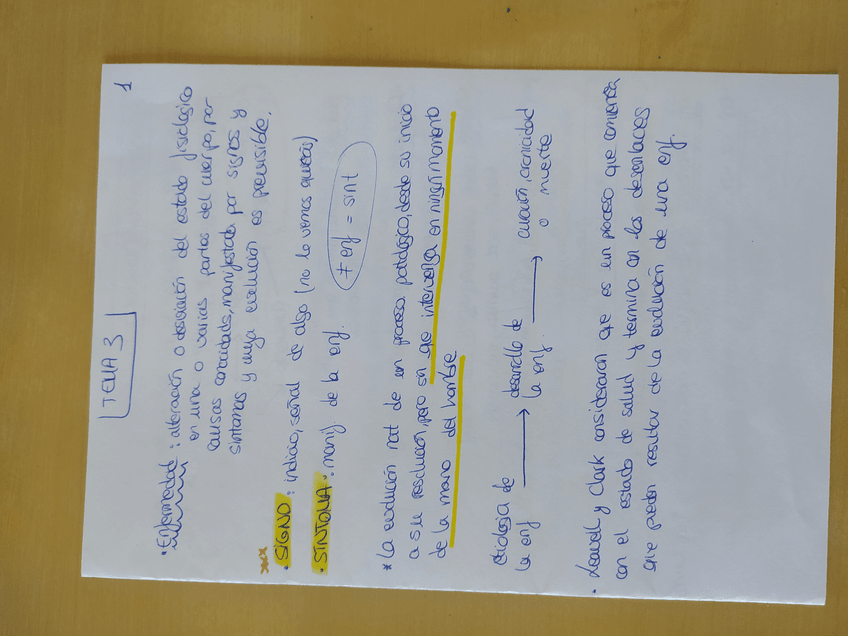 1
TEMA 3
• Enfermedad : alteración o desviación del estado fisiológico
en una o varias partes del cuerpo, por
causas conocidas, manifestada por signos y
síntomas y cuya evolución es previsible.
xxx
• SIGNO : indicio, señal de algo (no lo vemos
• SÍNTOMA : manif de la enf. ≠ enf = sint
* La evolución nat de un proceso patologico, desde su inicio
a su resolución, pero sin que intervenga en ningún momento
de la mano del hombre
etiología de
la enf → desarrollo de
la enf. → curación, cronicidad
o muerte
• Leavell y Clark consideraron que es un proceso que comienza
con el estado de salud y termina en los desenlaces
que pueden resultar de la evolución de una enf.